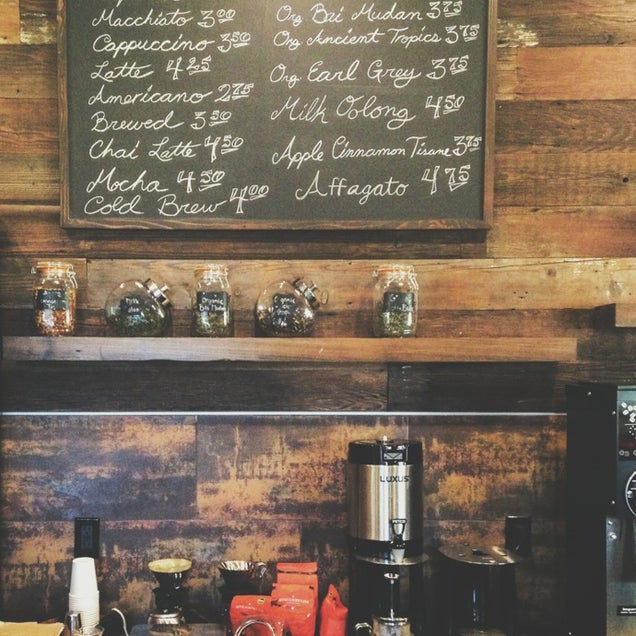 Macchiato 3.00
Cappuccino 3.50
Latte 4.25
Americano 2.75
Brewed 3.50
Chai Latte 4.50
Mocha 4.50
Cold Brew 4.00
Org Bai Mudan 3.75
Org. Ancient Tropics 3.75
Org. Earl Grey 3.75
Milk Oolong 4.50
Apple Cinnamon Tisane 3.75
Affagato 4.75
Organic
LUXUS
FETCO